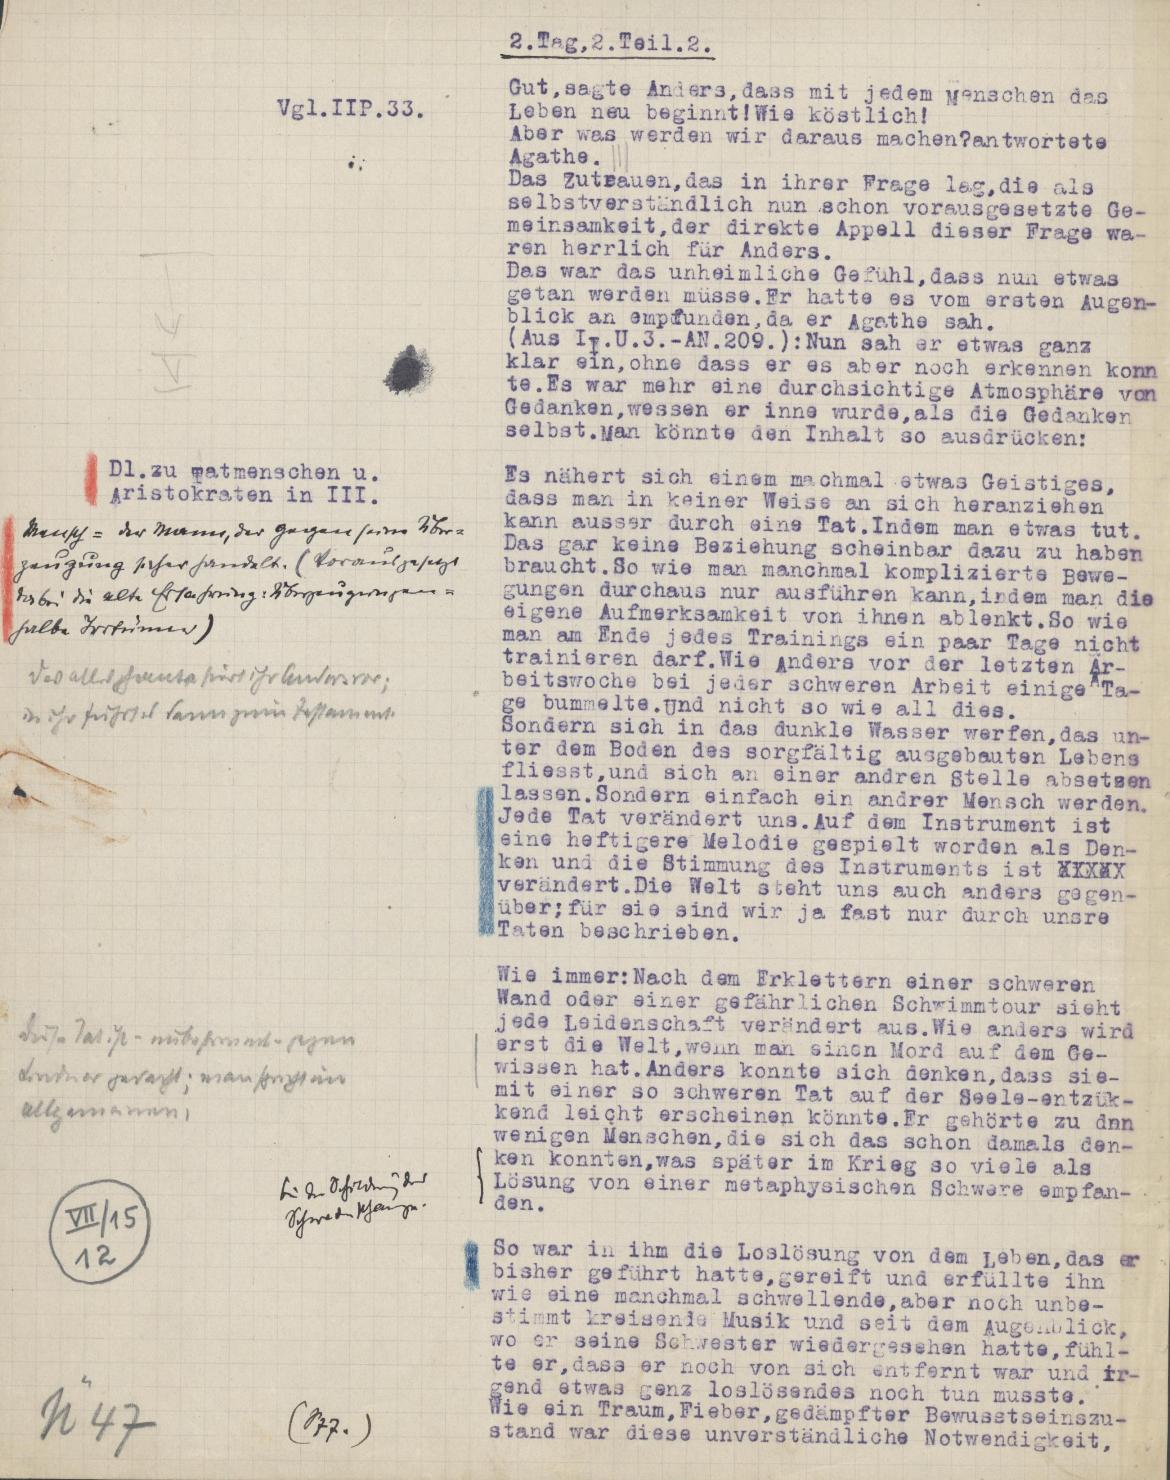 2.Tag,2.Teil.2.
Vgl.IIP.33.
Gut,sagte Anders,dass mit jedem Menschen das
Leben neu beginnt!Wie köstlich!
Aber was werden wir daraus machen?antwortete
Agathe.
Das Zutrauen,das in ihrer Frage lag,die als
selbstverständlich nun schon vorausgesetzte Ge-
meinsamkeit,der direkte Appell dieser Frage wa-
ren herrlich für Anders.
Das war das unheimliche Gefühl,dass nun etwas
getan werden müsse.Er hatte es vom ersten Augen-
blick an empfunden,da er Agathe sah.
(Aus I.U.3.-AN.209.):Nun sah er etwas ganz
klar ein,ohne dass er es aber noch erkennen konn
te.Es war mehr eine durchsichtige Atmosphäre von
Gedanken,wessen er inne wurde,als die Gedanken
selbst.Man könnte den Inhalt so ausdrücken:
Dl.zu Tatmenschen u.
Aristokraten in III.
Mensch = der Mann, der gegen seine Über-
zeugung sicher handelt. (Vorausgesetzt
dabei die alte Erfahrung: Überzeugungen =
halbe Irrtümer)
Es nähert sich einem machmal etwas Geistiges,
dass man in keiner Weise an sich heranziehen
kann ausser durch eine Tat.Indem man etwas tut.
Das gar keine Beziehung scheinbar dazu zu haben
braucht.So wie man manchmal komplizierte Bewe-
gungen durchaus nur ausführen kann,indem man die
eigene Aufmerksamkeit von ihnen ablenkt.So wie
man am Ende jedes Trainings ein paar Tage nicht
trainieren darf.Wie Anders vor der letzten Ar-
beitswoche bei jeder schweren Arbeit einige Ta-
ge bummelte.Und nicht so wie all dies.
Sondern sich in das dunkle Wasser werfen,das un-
ter dem Boden des sorgfältig ausgebauten Lebens
fliesst,und sich an einer andren Stelle absetzen
lassen.Sondern einfach ein andrer Mensch werden.
Jede Tat verändert uns.Auf dem Instrument ist
eine heftigere Melodie gespielt worden als Den-
ken und die Stimmung des Instruments ist XXXXX
verändert.Die Welt steht uns auch anders gegen-
über;für sie sind wir ja fast nur durch unsre
Taten beschrieben.
Wie immer:Nach dem Erklettern einer schweren
Wand oder einer gefährlichen Schwimmtour sieht
jede Leidenschaft verändert aus.Wie anders wird
erst die Welt,wenn man einen Mord auf dem Ge-
wissen hat.Anders konnte sich denken,dass sie-
mit einer so schweren Tat auf der Seele-entzük-
kend leicht erscheinen könnte.Er gehörte zu dnn
wenigen Menschen,die sich das schon damals den-
ken konnten,was später im Krieg so viele als
Lösung von einer metaphysischen Schwere empfan-
den.
Diese Tat ist - unbestimmt - gegen
Lindner gedacht; man spricht im
allgemeinen.
VII/15
12
So war in ihm die Loslösung von dem Leben,das er
bisher geführt hatte,gereift und erfüllte ihn
wie eine manchmal schwellende,aber noch unbe-
stimmt kreisende Musik und seit dem Augenblick,
wo er seine Schwester wiedergesehen hatte,fühl-
te er,dass er noch von sich entfernt war und ir-
gend etwas ganz loslösendes noch tun musste.
Wie ein Traum,Fieber,gedämpfter Bewusstseinszu-
stand war diese unverständliche Notwendigkeit,
47